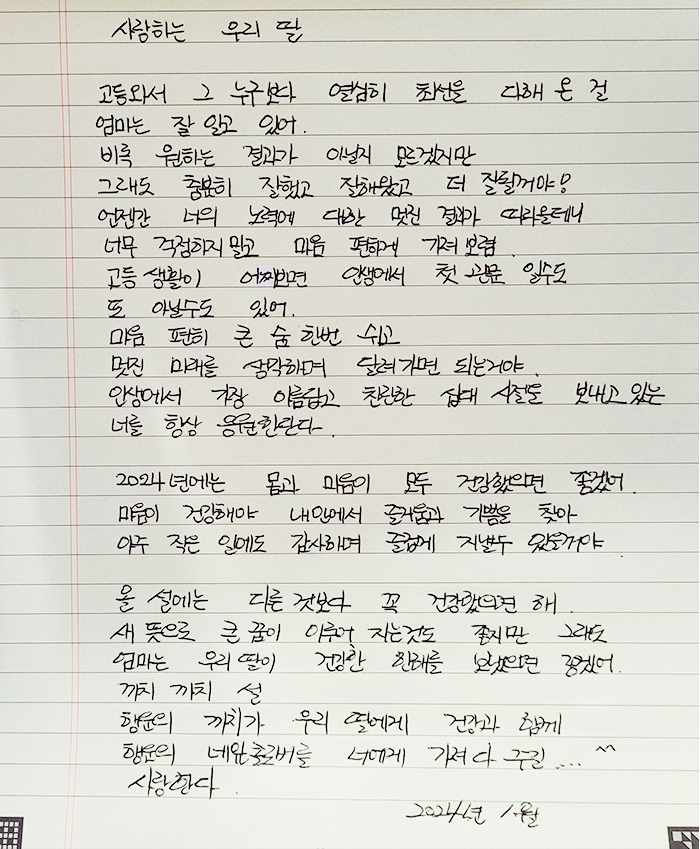 사랑하는 우리 딸
고등와서 그 누구보다 열심히 최선을 다해 온 걸
엄마는 잘 알고 있어.
비록 원하는 결과가 아닐지 모르겠지만
그래도 충분히 잘했고 잘해왔고 더 잘될꺼야!
언젠간 너의 노력에 대한 멋진 결과가 따라올테니
너무 걱정하지말고 마음 편하게 가져 보렴.
고등 생활이 어찌보면 인생에서 첫 관문 일수도
또 아닐수도 있어.
마음 편히 큰 숨 한번 쉬고
멋진 미래를 생각하며 달려가면 되는거야.
인생에서 가장 아름답고 찬란한 십대 시절도 보내고 있는
너를 항상 응원한단다.
2024년에는 몸과 마음이 모두 건강했으면 좋겠어.
마음이 건강해야 내안에서 즐거움과 기쁨을 찾아
아주 작은 일에도 감사하며 즐겁게 지낼수 있을거야.
올 설에는 다른 것보다 꼭 건강했으면 해.
새 뜻으로 큰 꿈이 이루어 지는것도 좋지만 그래도
엄마는 우리딸이 건강한 한해를 보냈으면 좋겠어.
까치 까치 설
행운의 까치가 우리 딸에게 건강과 함께
행운의 네잎클로버를 너에게 가져다 주길.... ^^
사랑한다.
2024년 1월